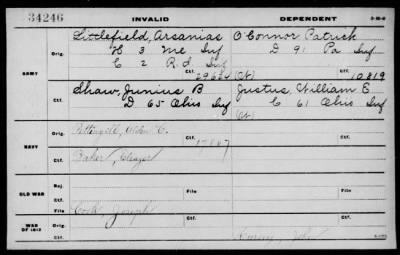 34246 INVALID DEPENDENT 3-25-6
ARMY
Orig. Littlefield, Arsanias O'Connor Patrick
H 3 Me Inf D 91 Pa Inf
C 2 R.I. Inf
29634 (Ct) Ctf. 10819
Ctf. Shaw, Junius B Justus, William E
D 65 Ohio Inf C 61 Ohio Inf
(Ct)
NAVY
Orig. Pettingill, Alden C. Orig.
Ctf. 17867
Ctf. Baker, Eleazer Ctf.
OLD WAR
Rej. File File
Ctf.
WAR OF 1812
Orig. Cook, Joseph Ctf. File
Ctf. John